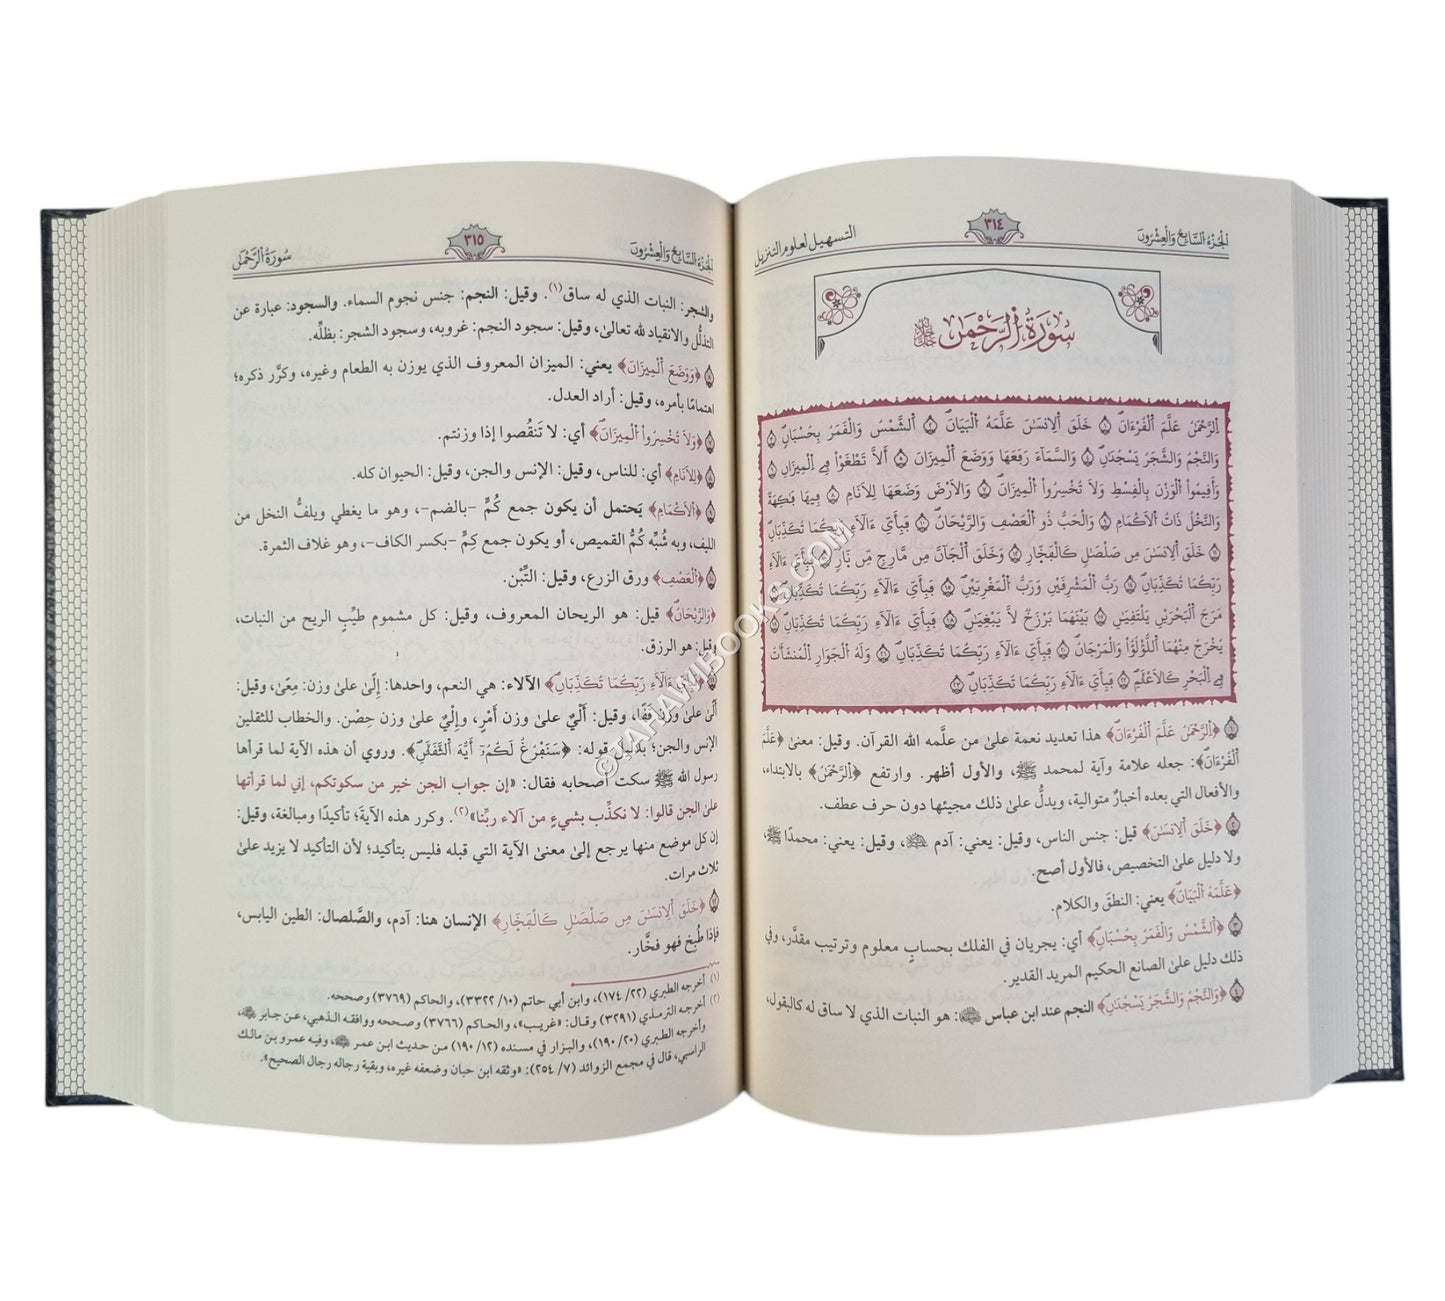 الجزء السابع والعشرون
٣١٤
التسهيل لعلوم التنزيل
سورة الرحمن
اِ۬لرَّحْمَٰنُ عَلَّمَ اَ۬لْقُرْءَانَۖ ۝١ خَلَقَ اَ۬لِانسَٰنَ عَلَّمَهُ اُ۬لْبَيَانَۖ ۝٢ اَ۬لشَّمْسُ وَالْقَمَرُ بِحُسْبَانٖۖ ۝٣
وَالنَّجْمُ وَالشَّجَرُ يَسْجُدَٰنِۖ ۝٤ وَالسَّمَآءَ رَفَعَهَا وَوَضَعَ اَ۬لْمِيزَانَ ۝٥ أَلَّا تَطْغَوْاْ فِے اِ۬لْمِيزَانِۖ ۝٦
وَأَقِيمُواْ اُ۬لْوَزْنَ بِالْقِسْطِ وَلَا تُخْسِرُواْ اُ۬لْمِيزَانَۖ ۝٧ وَالَارْضَ وَضَعَهَا لِلَانَامِ ۝٨ فِيهَا فَٰكِهَةٞ
وَالنَّخْلُ ذَاتُ اُ۬لَاكْمَامِ ۝٩ وَالْحَبُّ ذُو اُ۬لْعَصْفِ وَالرَّيْحَانُۖ ۝١٠ فَبِأَيِّ ءَالَآءِ رَبِّكُمَا تُكَذِّبَانِۖ
۝١١ خَلَقَ اَ۬لِانسَٰنَ مِن صَلْصَٰلٖ كَالْفَخّ۪ارِ ۝١٢ وَخَلَقَ اَ۬لْجَآنَّ مِن مَّارِجٖ مِّن نّ۪ارٖۖ ۝١٣ فَبِأَيِّ ءَالَآءِ
رَبِّكُمَا تُكَذِّبَانِۖ ۝١٤ رَبُّ اُ۬لْمَشْرِقَيْنِ وَرَبُّ اُ۬لْمَغْرِبَيْنِۖ ۝١٥ فَبِأَيِّ ءَالَآءِ رَبِّكُمَا تُكَذِّبَانِۖ ۝١٦
مَرَجَ اَ۬لْبَحْرَيْنِ يَلْتَقِيَٰنِ ۝١٧ بَيْنَهُمَا بَرْزَخٞ لَّا يَبْغِيَٰنِۖ ۝١٨ فَبِأَيِّ ءَالَآءِ رَبِّكُمَا تُكَذِّبَانِۖ ۝١٩
يُخْرَجُ مِنْهُمَا اَ۬للُّؤْلُؤُاْ وَالْمَرْجَانُۖ ۝٢٠ فَبِأَيِّ ءَالَآءِ رَبِّكُمَا تُكَذِّبَانِۖ ۝٢١ وَلَهُ اُ۬لْجَوَارِ اِ۬لْمُنشَـَٔاتُ
فِے اِ۬لْبَحْرِ كَالَاعْلَٰمِۖ ۝٢٢ فَبِأَيِّ ءَالَآءِ رَبِّكُمَا تُكَذِّبَانِۖ ۝٢٣
۝١ ﴿اِ۬لرَّحْمَٰنُ عَلَّمَ اَ۬لْقُرْءَانَۖ﴾ هذا تعديد نعمة علىٰ من علَّمه الله القرآن. وقيل: معنىٰ ﴿عَلَّمَ
اَ۬لْقُرْءَانَۖ﴾: جعله علامة وآية لمحمد ﷺ، والأول أظهر. وارتفع ﴿اِ۬لرَّحْمَٰنُ﴾ بالابتداء،
والأفعال التي بعده أخبارٌ متوالية، ويدلُّ علىٰ ذلك مجيئها دون حرف عطف.
۝٢ ﴿خَلَقَ اَ۬لِانسَٰنَ﴾ قيل: جنس الناس، وقيل: يعني: آدم، وقيل: يعني: محمدًا ﷺ،
ولا دليل علىٰ التخصيص، فالأول أصح.
﴿عَلَّمَهُ اُ۬لْبَيَانَۖ﴾ يعني: النطق والكلام.
۝٣ ﴿اَ۬لشَّمْسُ وَالْقَمَرُ بِحُسْبَانٖ﴾ أي: يجريان في الفلك بحسابٍ معلوم وترتيب مقدَّر، وفي
ذلك دليل علىٰ الصانع الحكيم المريد القدير.
۝٤ ﴿وَالنَّجْمُ وَالشَّجَرُ يَسْجُدَٰنِۖ﴾ النجم عند ابن عباس: هو النبات الذي لا ساق له كالبقول،
الجزء السابع والعشرون
٣١٥
سورة الرحمن
والشجر: النبات الذي له ساق(١). وقيل: النجم: جنس نجوم السماء. والسجود: عبارة عن
التذلُّل والانقياد لله تعالىٰ، وقيل: سجود النجم: غروبه، وسجود الشجر: بظلِّه.
۝٥ ﴿وَوَضَعَ اَ۬لْمِيزَانَ﴾ يعني: الميزان المعروف الذي يوزن به الطعام وغيره، وكرَّر ذكره؛
اهتمامًا بأمره، وقيل: أراد العدل.
۝٧ ﴿وَلَا تُخْسِرُواْ اُ۬لْمِيزَانَۖ﴾ أي: لا تَنقُصوا إذا وزنتم.
۝٨ ﴿لِلَانَامِ﴾ أي: للناس، وقيل: الإنس والجن، وقيل: الحيوان كله.
۝٩ ﴿اُ۬لَاكْمَامِ﴾ يَحتمل أن يكون جمع كُمٍّ -بالضم-، وهو ما يغطي ويلفُّ النخل من
الليف، وبه شُبِّه كُمُّ القميص، أو يكون جمع كِمٍّ -بكسر الكاف-، وهو غلاف الثمرة.
۝١٠ ﴿اُ۬لْعَصْفِ﴾ ورق الزرع، وقيل: التِّبْن.
﴿وَالرَّيْحَانُۖ﴾ قيل: هو الريحان المعروف، وقيل: كل مشموم طيِّبِ الريح من النبات،
وقيل: هو الرزق.
۝١١ ﴿فَبِأَيِّ ءَالَآءِ رَبِّكُمَا تُكَذِّبَانِۖ﴾ الآلاء: هي النعم، واحدها: إِلًى علىٰ وزن: مِعًى، وقيل:
أَلًى علىٰ وزن قَفًا، وقيل: أَلْيٌ علىٰ وزن أَمْرٍ، وإِلْيٌ علىٰ وزن حِصْن. والخطاب للثقلين
الإنس والجن؛ بدليل قوله: ﴿سَنَفْرُغُ لَكُمُۥٓ أَيُّهَ اَ۬لثَّقَلَٰنِۖ﴾. وروي أن هذه الآية لما قرأها
رسول الله ﷺ سكت أصحابه فقال: «إن جواب الجن خير من سكوتكم، إني لما قرأتها
علىٰ الجن قالوا: لا نكذِّب بشيءٍ من آلاء ربِّنا»(٢). وكرر هذه الآية؛ تأكيدًا ومبالغة، وقيل:
إن كل موضع منها يرجع إلىٰ معنىٰ الآية التي قبله فليس بتأكيد؛ لأن التأكيد لا يزيد علىٰ
ثلاث مرات.
۝١٢ ﴿خَلَقَ اَ۬لِانسَٰنَ مِن صَلْصَٰلٖ كَالْفَخّ۪ارِ﴾ الإنسان هنا: آدم، والصَّلصال: الطين اليابس،
فإذا طُبخ فهو فخَّار.
(١) أخرجه الطبري (٢٢/ ١٧٤)، وابن أبي حاتم (١٠/ ٣٣٢٢)، والحاكم (٣٧٦٩) وصححه.
(٢) أخرجه الترمذي (٣٢٩١) وقال: «غريب»، والحاكم (٣٧٦٦) وصححه ووافقه الذهبي، عن جابر،
وأخرجه الطبري (٢٠/ ١٩٠)، والبزار في مسنده (١٢/ ١٩٠) من حديث ابن عمر، وفيه عمرو بن مالك
الراسبي، قال في مجمع الزوائد (٧/ ٢٥٤): «وثقه ابن حبان وضعفه غيره، وبقية رجاله رجال الصحيح».
©TAHAWIBOOKS.COM